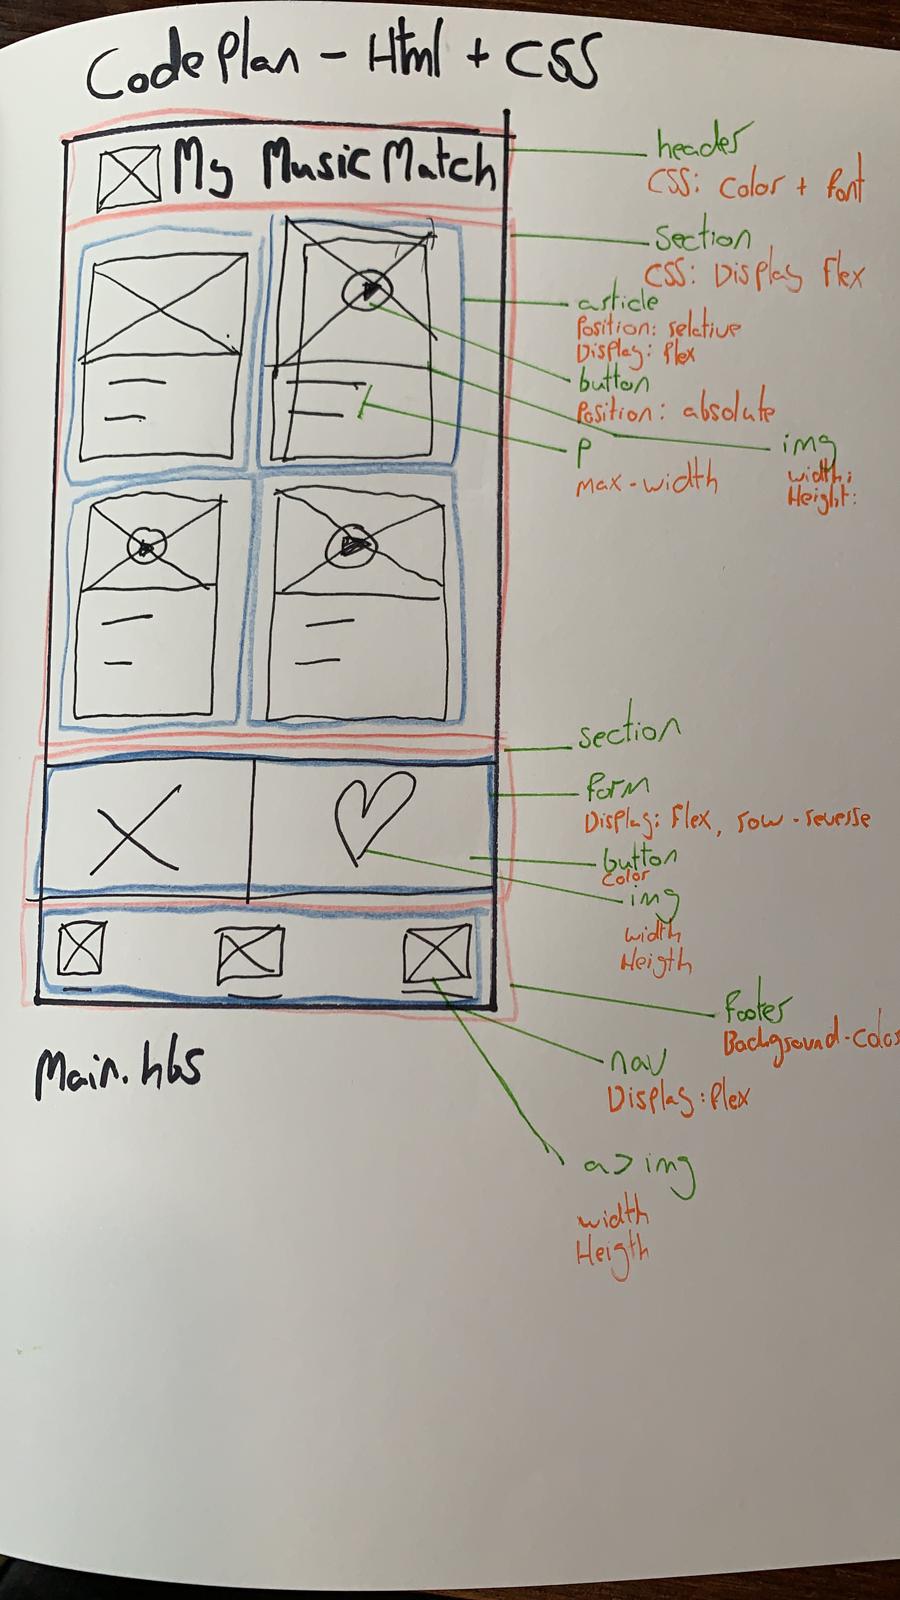 Code Plan - Html + CSS
My Music Match
header
CSS: Color + Font
Section
CSS: Display Flex
article
Position: relative
Display: flex
button
Position: absolute
p
max-width
img
width:
Height:
section
form
Display: Flex, row-reverse
button
Color
img
width
Heigth
footer
Background-Color
nav
Display: flex
a > img
width
Heigth
Main.hbs